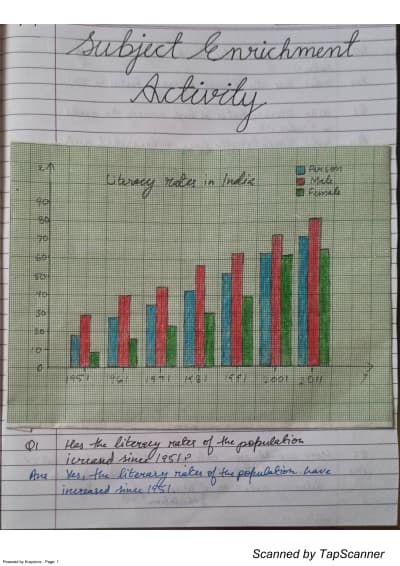 Subject Enrichment
Activity
Literacy rates in India
Person
Male
Female
90
80
70
60
50
40
30
20
10
0
1951 1961 1971 1981 1991 2001 2011
Q1 Has the literecy rates of the population
icreased since 1951?
Ans Yes, the literary rates of the population have
increased since 1951.
Scanned by TapScanner